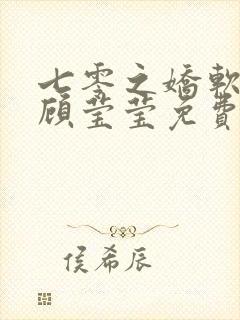 七零之嬌軟
顧莹莹免費
侯希辰